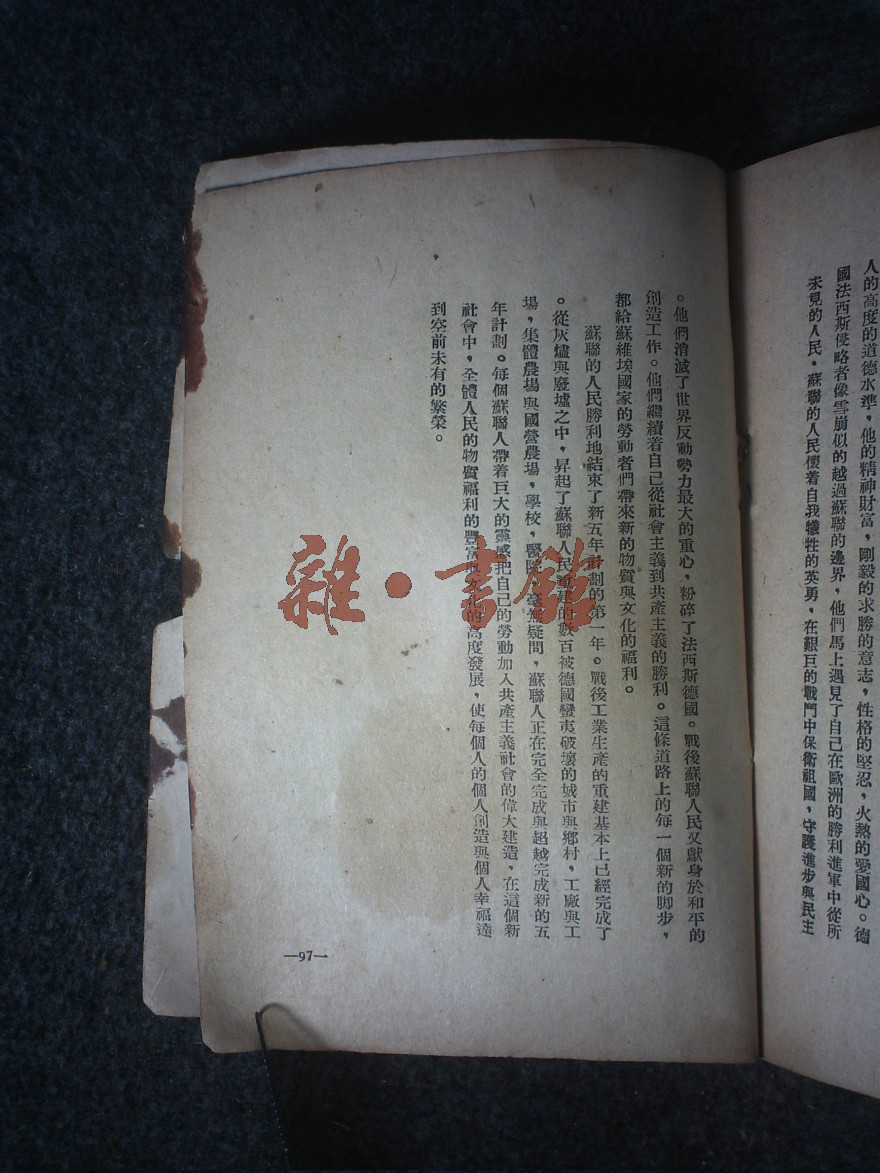 人的高度的道德水準，他的精神財富，剛毅的求勝的意志，性格的堅忍，火熱的愛國心。德
國法西斯侵略者像雪崩似的越過蘇聯的邊界，他們馬上遇見了自己在歐洲的勝利進軍中從所
未見的人民。蘇聯的人民懷着自我犧牲的英勇，在艱巨的戰鬥中保衛祖國，守護進步與民主
。他們消滅了世界反動勢力最大的重心，粉碎了法西斯德國。戰後蘇聯人民又獻身於和平的
創造工作。他們繼續着自己從社會主義到共產主義的勝利。這條道路上的每一個新的脚步，
都給蘇維埃國家的勞動者們帶來新的物質與文化的福利。
蘇聯的人民勝利地結束了新五年計劃的第一年。戰後工業生產的重建基本上已經完成了
。從灰燼與廢墟之中，昇起了蘇聯人民重建的數百被德國蠻夷破壞的城市與鄉村，工廠與工
場，集體農場與國營農場，學校，醫院。毫無疑問，蘇聯人正在完全完成與超越完成新的五
年計劃。每個蘇聯人帶着巨大的靈感把自己的勞動加入共產主義社會的偉大建造，在這個新
社會中，全體人民的物質福利的豐富與文化的高度發展，使每個人的個人創造與個人幸福達
到空前未有的繁榮。
—97—
雜·書館